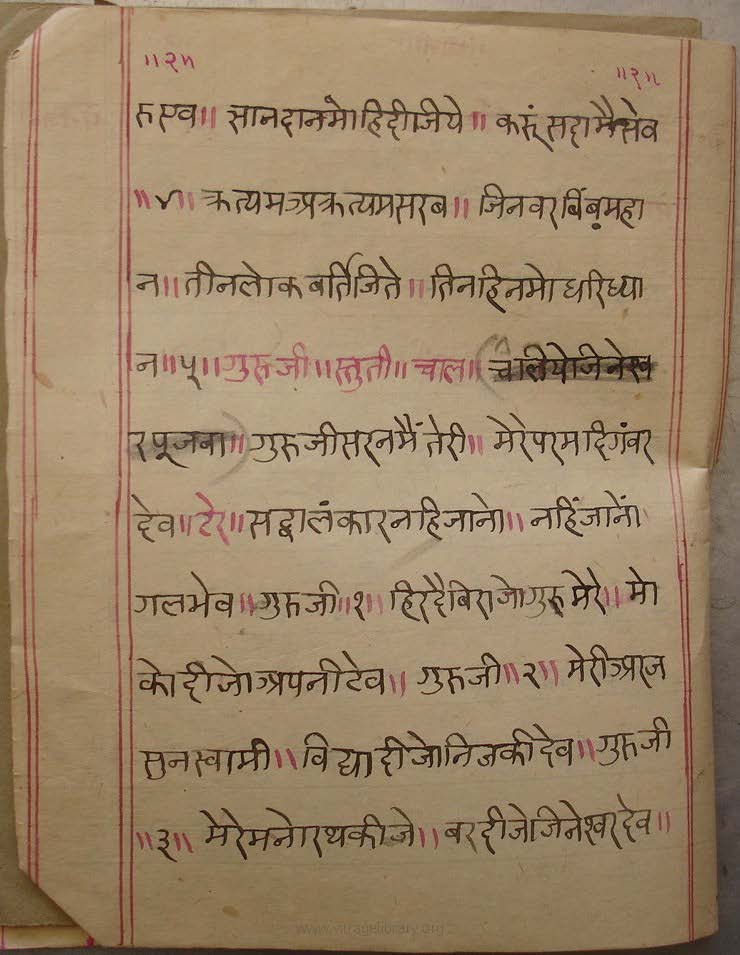 ॥२॥ ॥२॥
रुएव॥ सानदानमोहिदीजिये॥ करूंसदामैसेव
॥४॥ क्रत्यमअक्रत्यमसरब॥ जिनवरबिंबमहा
न॥ तीनलोकबर्तिजिते॥ तिनहिनमोधरिध्या
न॥५॥ गुरुजी॥ स्तुती॥ चाल॥ चालियोजिनेस्व
रपूजवा॥ गुरुजीसरनमैंतेरी॥ मेरेपरमदिगंवर
देव॥टेर॥ सद्वालंकारनहिजानो॥ नहिंजांनों
गलभेव॥ गुरुजी॥१॥ हिरदैबिराजोगुरुमेरे॥ मो
कोदीजोअपनीटेव॥ गुरुजी॥२॥ मेरीअरज
सुनस्वामी॥ विद्यादीजोनिजकीदेव॥ गुरुजी
॥३॥ मेरेमनोरथकीजे॥ बरदीजेजिनेश्वरदेव॥
www.vitragelibrary.org